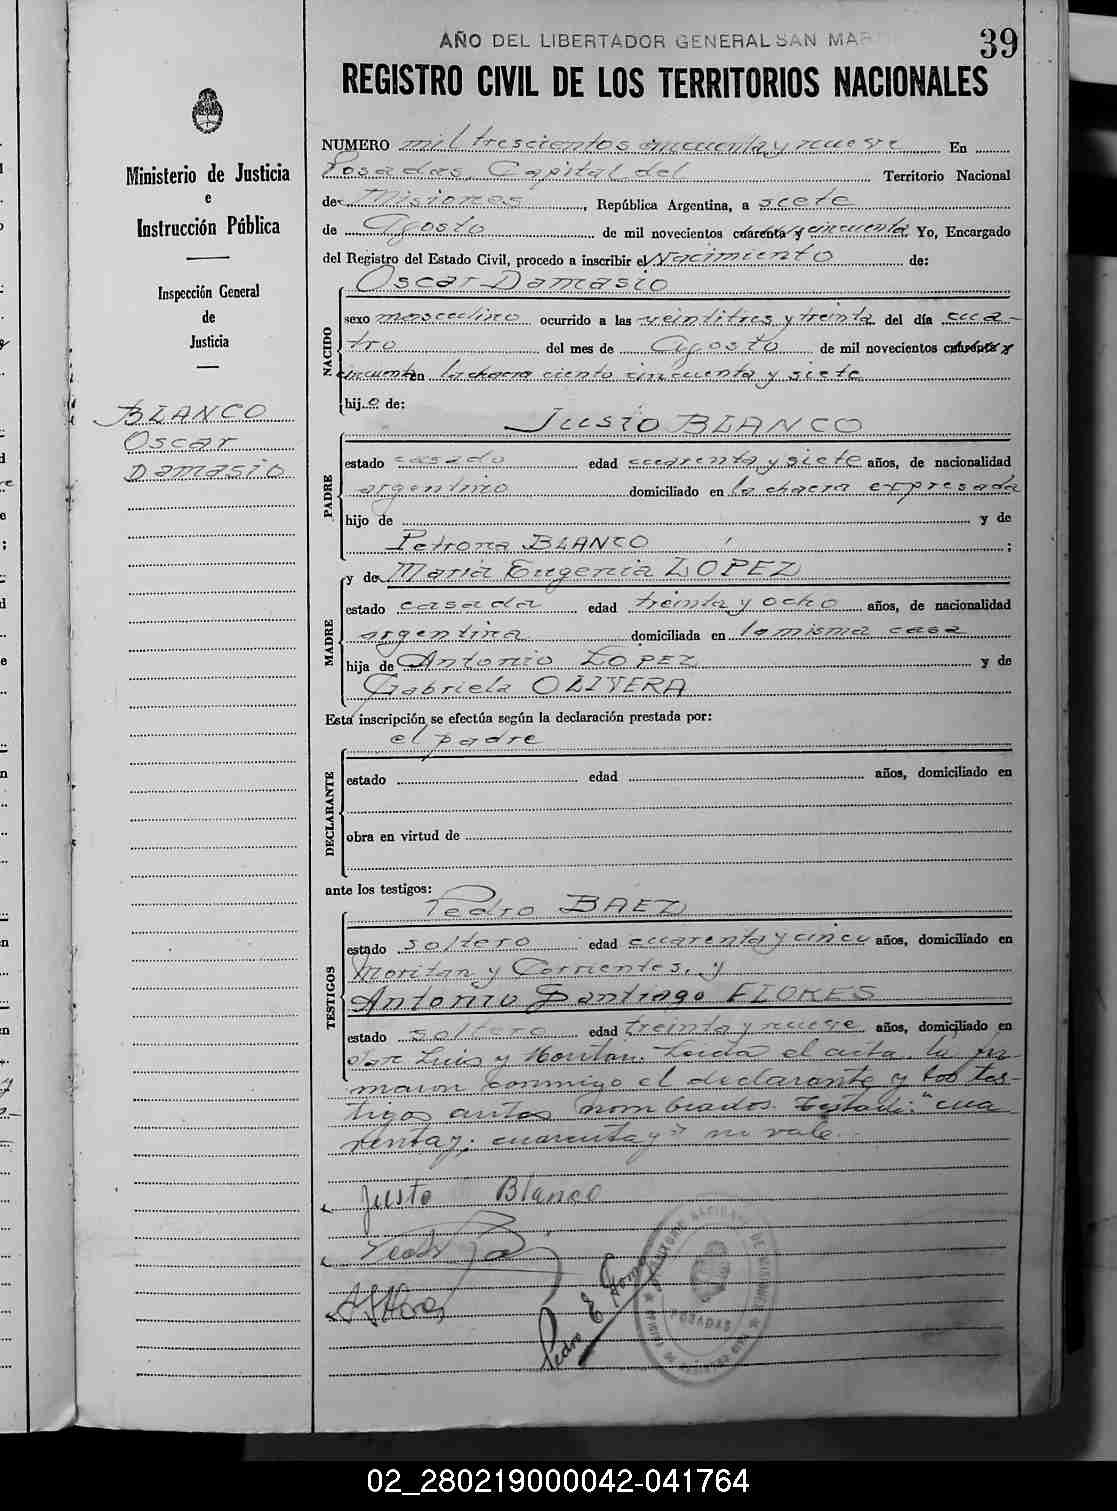 AÑO DEL LIBERTADOR GENERAL SAN MAR
39
REGISTRO CIVIL DE LOS TERRITORIOS NACIONALES
Ministerio de Justicia
e
Instrucción Pública
Inspección General
de
Justicia
BLANCO
Oscar
Damasio
NUMERO mil trescientos cincuenta y nueve En
Posadas, Capital del Territorio Nacional
de Misiones, República Argentina, a siete
de Agosto de mil novecientos cuarenta y cincuenta Yo, Encargado
del Registro del Estado Civil, procedo a inscribir el Nacimiento de:
Oscar Damasio
NACIDO
sexo masculino ocurrido a las veintitres y treinta del día cua-
tro del mes de Agosto de mil novecientos cuarenta y
cincuenta en la chacra ciento cincuenta y siete
hijo de:
Justo BLANCO
PADRE
estado casado edad cuarenta y siete años, de nacionalidad
argentino domiciliado en la chacra expresada
hijo de y de
Petrona BLANCO ;
y de Maria Eugenia LOPEZ
MADRE
estado casada edad treinta y ocho años, de nacionalidad
argentina domiciliada en la misma casa
hija de Antonio LOPEZ y de
Gabriela OLIVERA
Esta inscripción se efectúa según la declaración prestada por:
el padre
DECLARANTE
estado edad años, domiciliado en
obra en virtud de
ante los testigos:
Pedro BAEZ
TESTIGOS
estado soltero edad cuarenta y cinco años, domiciliado en
Moritan y Corrientes, y
Antonio Santiago FLORES
estado soltero edad treinta y nueve años, domiciliado en
San Luis y Moritan. Leida el acta la fir-
maron conmigo el declarante y los tes-
tigos antes nombrados. Testado: "cua
renta y; cuarenta y" no vale.
Justo Blanco
Pedro E
POSADAS
02_280219000042-041764